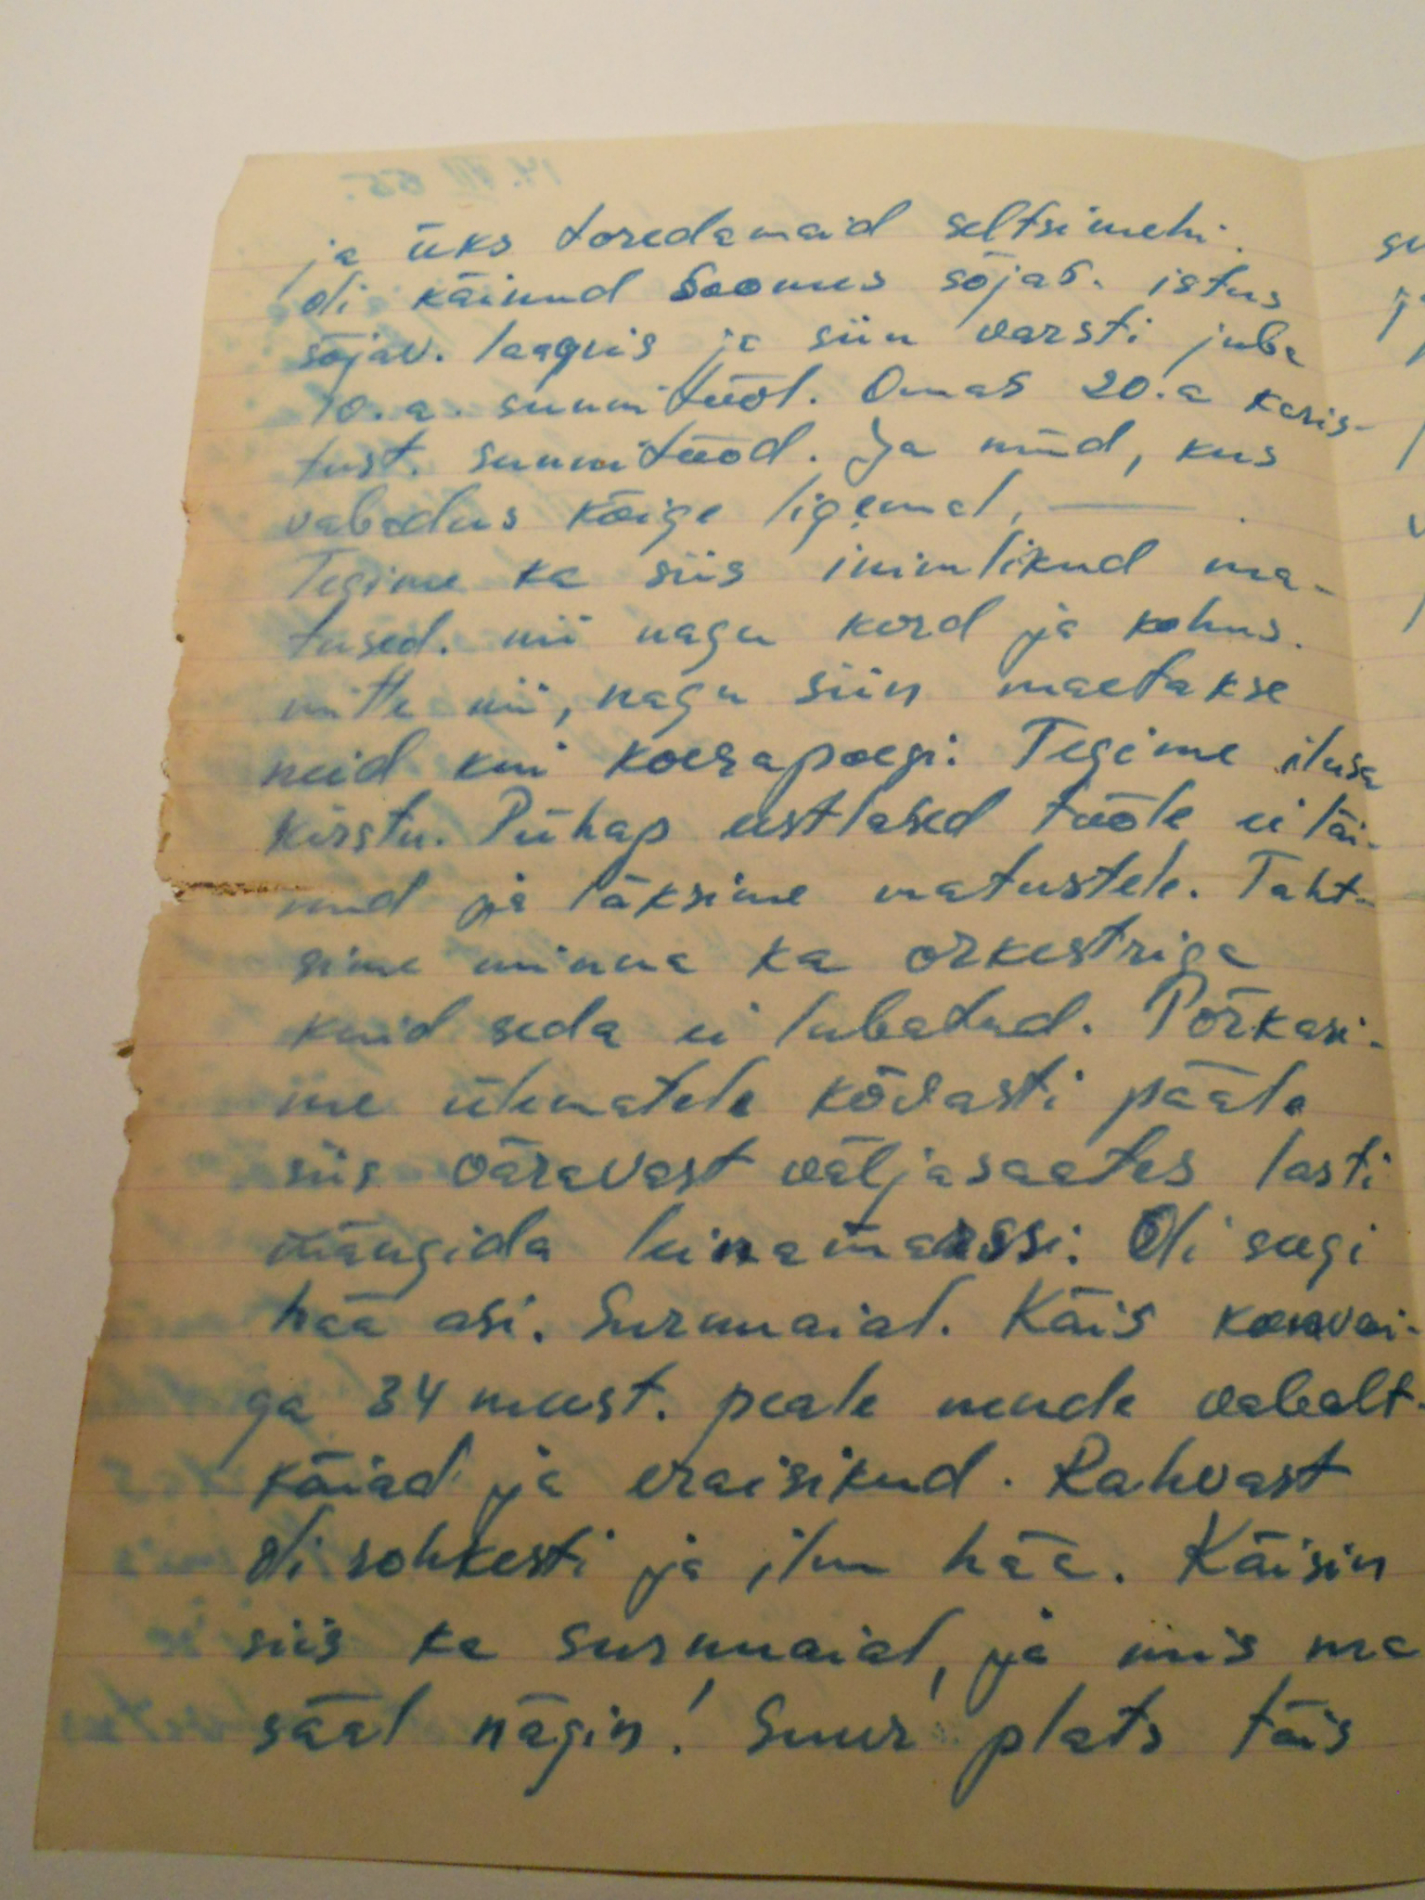 ja üks toredamaid seltsimehi.
oli käinud Soomes sõjas. istus
sõjav. laagris ja siin varsti juba
10.a. sunnitööl. Omas 20.a karis-
tust. sunnitööd. Ja nüüd, kus
vabadus kõige ligemal, ——— .
Tegime ka siis inimlikud ma-
tused. nii nagu kord ja kohus.
mitte nii, nagu siin maetakse
neid kui koerapoegi: Tegime ilusa
kirstu. Pühap eestlased tööle ei läi-
nud ja läksime matustele. Taht-
sime minna ka orkestriga
kuid seda ei lubatud. Põrkasi-
me ülematele kõvasti pääle
siis väravast väljasaates lasti
mängida leinamarssi. Oli seegi
hää asi. Surnuaial. Käis konvoi-
ga 34 meest. peale nende vabalt-
käiad ja eraisikud. Rahvast
oli rohkesti ja ilm hää. Käisin
siis ka surnuaial, ja mis ma
sääl nägin! Suur plats täis